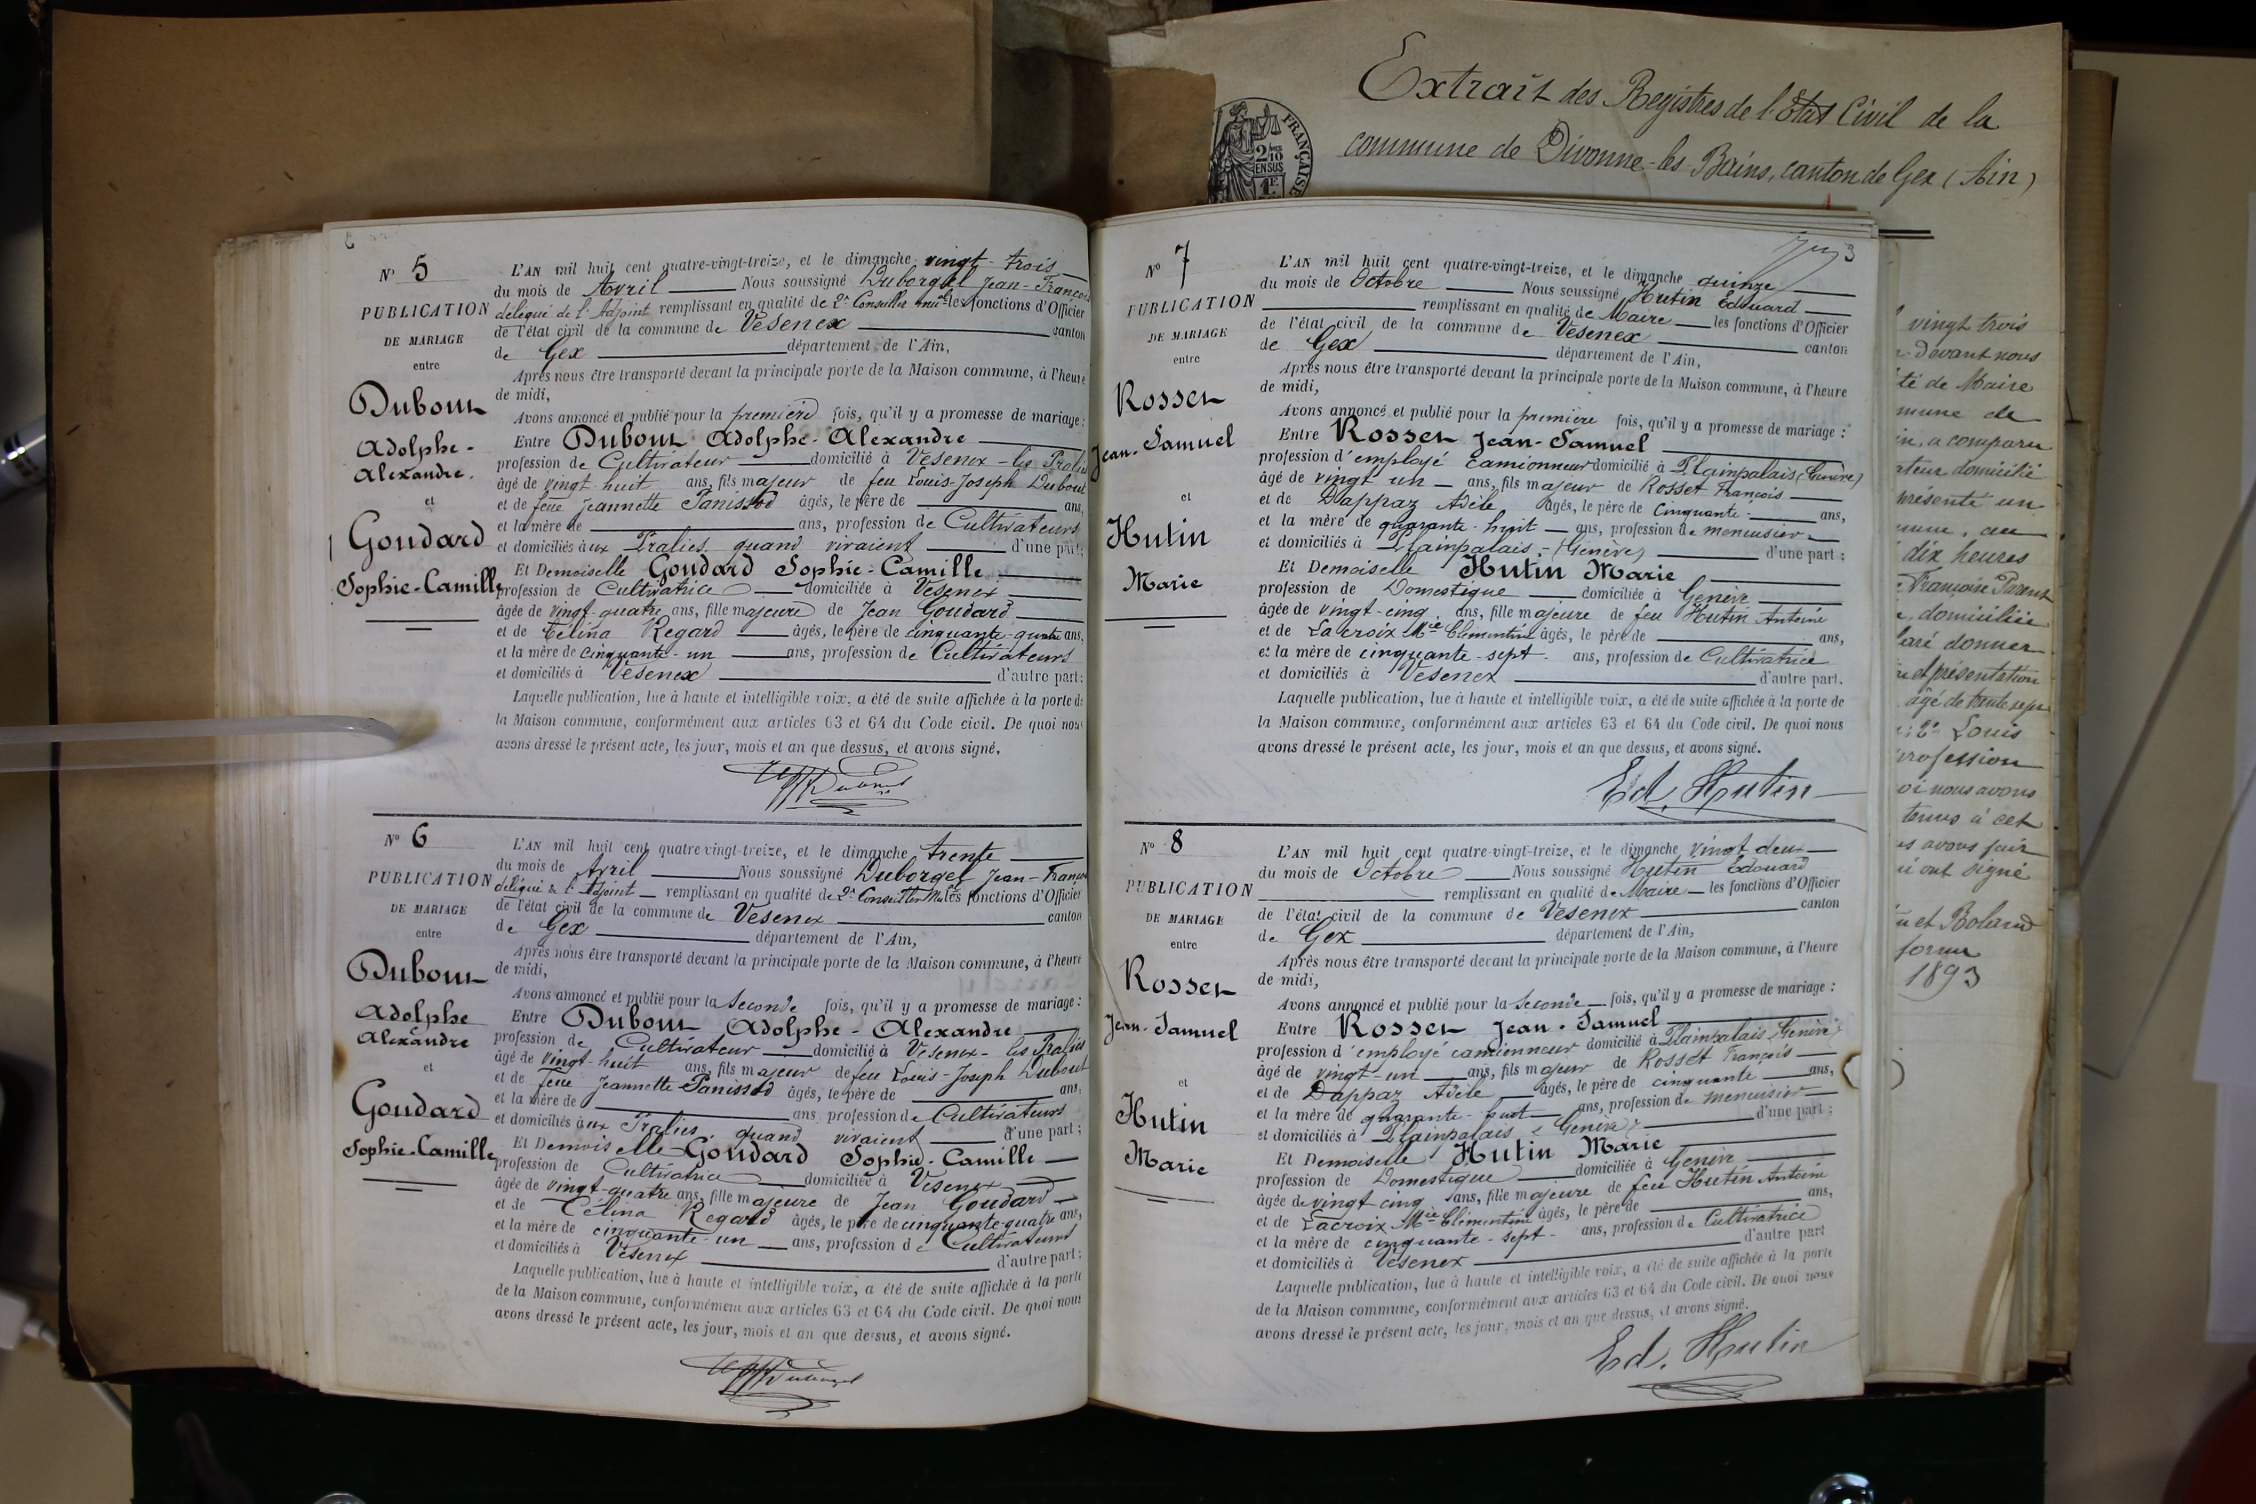 Extrait des Registres de l'Etat Civil de la
commune de Divonne-les-Bains, canton de Gex (Ain)
FRANÇAISE
2/10
EN SUS
N° 5
PUBLICATION
DE MARIAGE
entre
Dubout
Adolphe-
Alexandre.
et
Goudard
Sophie-Camille
L'AN mil huit cent quatre-vingt-treize, et le dimanche vingt-trois
du mois de Avril Nous soussigné Duborgel Jean-François
délégué de l'Adjoint remplissant en qualité de 2e Conseiller mal les fonctions d'Officier
de l'état civil de la commune de Vesenex canton
de Gex département de l'Ain,
Après nous être transporté devant la principale porte de la Maison commune, à l'heure
de midi,
Avons annoncé et publié pour la première fois, qu'il y a promesse de mariage :
Entre Dubout Adolphe-Alexandre
profession de Cultivateur domicilié à Vesenex-les Pralies
âgé de vingt huit ans, fils majeur de feu Louis-Joseph Dubout
et de feue Jeannette Panissod âgés, le père de ans,
et la mère de ans, profession de Cultivateurs
et domiciliés aux Pralies quand vivaient d'une part ;
Et Demoiselle Goudard Sophie-Camille
profession de Cultivatrice domiciliée à Vesenex
âgée de vingt-quatre ans, fille majeure de Jean Goudard
et de Célina Regard âgés, le père de cinquante-quatre ans,
et la mère de cinquante-un ans, profession de Cultivateurs
et domiciliés à Vesenex d'autre part:
Laquelle publication, lue à haute et intelligible voix, a été de suite affichée à la porte de
la Maison commune, conformément aux articles 63 et 64 du Code civil. De quoi nous
avons dressé le présent acte, les jour, mois et an que dessus, et avons signé.
N° 6
PUBLICATION
DE MARIAGE
entre
Dubout
Adolphe
Alexandre
et
Goudard
Sophie-Camille
L'AN mil huit cent quatre-vingt-treize, et le dimanche trente
du mois de Avril Nous soussigné Duborgel Jean-François
délégué de l'Adjoint remplissant en qualité de 2e Conseiller Mal les fonctions d'Officier
de l'état civil de la commune de Vesenex canton
de Gex département de l'Ain,
Après nous être transporté devant la principale porte de la Maison commune, à l'heure
de midi,
Avons annoncé et publié pour la Seconde fois, qu'il y a promesse de mariage :
Entre Dubout Adolphe-Alexandre
profession de Cultivateur domicilié à Vesenex-les Pralies
âgé de vingt-huit ans, fils majeur de feu Louis-Joseph Dubout
et de feue Jeannette Panissod âgés, le père de ans,
et la mère de ans profession de Cultivateurs
et domiciliés aux Pralies quand vivaient d'une part ;
Et Demoiselle Goudard Sophie-Camille
profession de Cultivatrice domiciliée à Vesenex
âgée de vingt-quatre ans, fille majeure de Jean Goudard
et de Célina Regard âgés, le père de cinquante-quatre ans,
et la mère de cinquante-un ans, profession de Cultivateurs
et domiciliés à Vesenex d'autre part :
Laquelle publication, lue à haute et intelligible voix, a été de suite affichée à la porte
de la Maison commune, conformément aux articles 63 et 64 du Code civil. De quoi nous
avons dressé le présent acte, les jour, mois et an que dessus, et avons signé.
N° 7
PUBLICATION
DE MARIAGE
entre
Rosset
Jean-Samuel
et
Hutin
Marie
L'AN mil huit cent quatre-vingt-treize, et le dimanche quinze
du mois de Octobre Nous soussigné Hutin Edouard
remplissant en qualité de Maire les fonctions d'Officier
de l'état civil de la commune de Vesenex canton
de Gex département de l'Ain,
Après nous être transporté devant la principale porte de la Maison commune, à l'heure
de midi,
Avons annoncé et publié pour la première fois, qu'il y a promesse de mariage :
Entre Rosset Jean-Samuel
profession d'employé camionneur domicilié à Plainpalais (Genève)
âgé de vingt un ans, fils majeur de Rosset François
et de Dappaz Adèle âgés, le père de Cinquante ans,
et la mère de quarante-huit ans, profession de menuisier
et domiciliés à Plainpalais (Genève) d'une part ;
Et Demoiselle Hutin Marie
profession de Domestique domiciliée à Genève
âgée de vingt-cinq ans, fille majeure de feu Hutin Antoine
et de Lacroix Mie Clémentine âgés, le père de ans,
et la mère de cinquante-sept ans, profession de Cultivatrice
et domiciliés à Vesenex d'autre part.
Laquelle publication, lue à haute et intelligible voix, a été de suite affichée à la porte de
la Maison commune, conformément aux articles 63 et 64 du Code civil. De quoi nous
avons dressé le présent acte, les jour, mois et an que dessus, et avons signé.
Ed. Hutin
N° 8
PUBLICATION
DE MARIAGE
entre
Rosset
Jean-Samuel
et
Hutin
Marie
L'AN mil huit cent quatre-vingt-treize, et le dimanche vingt deux
du mois de Octobre Nous soussigné Hutin Edouard
remplissant en qualité de Maire les fonctions d'Officier
de l'état civil de la commune de Vesenex canton
de Gex département de l'Ain,
Après nous être transporté devant la principale porte de la Maison commune, à l'heure
de midi,
Avons annoncé et publié pour la Seconde fois, qu'il y a promesse de mariage :
Entre Rosset Jean-Samuel
profession d'employé camionneur domicilié à Plainpalais (Genève)
âgé de vingt-un ans, fils majeur de Rosset François
et de Dappaz Adèle âgés, le père de cinquante ans,
et la mère de quarante-huit ans, profession de menuisier
et domiciliés à Plainpalais (Genève) d'une part ;
Et Demoiselle Hutin Marie
profession de Domestique domiciliée à Genève
âgée de vingt cinq ans, fille majeure de feu Hutin Antoine
et de Lacroix Mie Clémentine âgés, le père de ans,
et la mère de cinquante-sept ans, profession de Cultivatrice
et domiciliés à Vesenex d'autre part
Laquelle publication, lue à haute et intelligible voix, a été de suite affichée à la porte
de la Maison commune, conformément aux articles 63 et 64 du Code civil. De quoi nous
avons dressé le présent acte, les jour, mois et an que dessus, et avons signé.
Ed. Hutin
vingt trois
devant nous
té de Maire
mune de
a comparu
ateur domicilié
présenté un
au
dix heures
Françoise Parent
domiciliée
laré donner
et présentation
âgé de trente sept
2° Louis
profession
oi nous avons
tenus à cet
us avons fait
ui ont signé
et Boland
1893